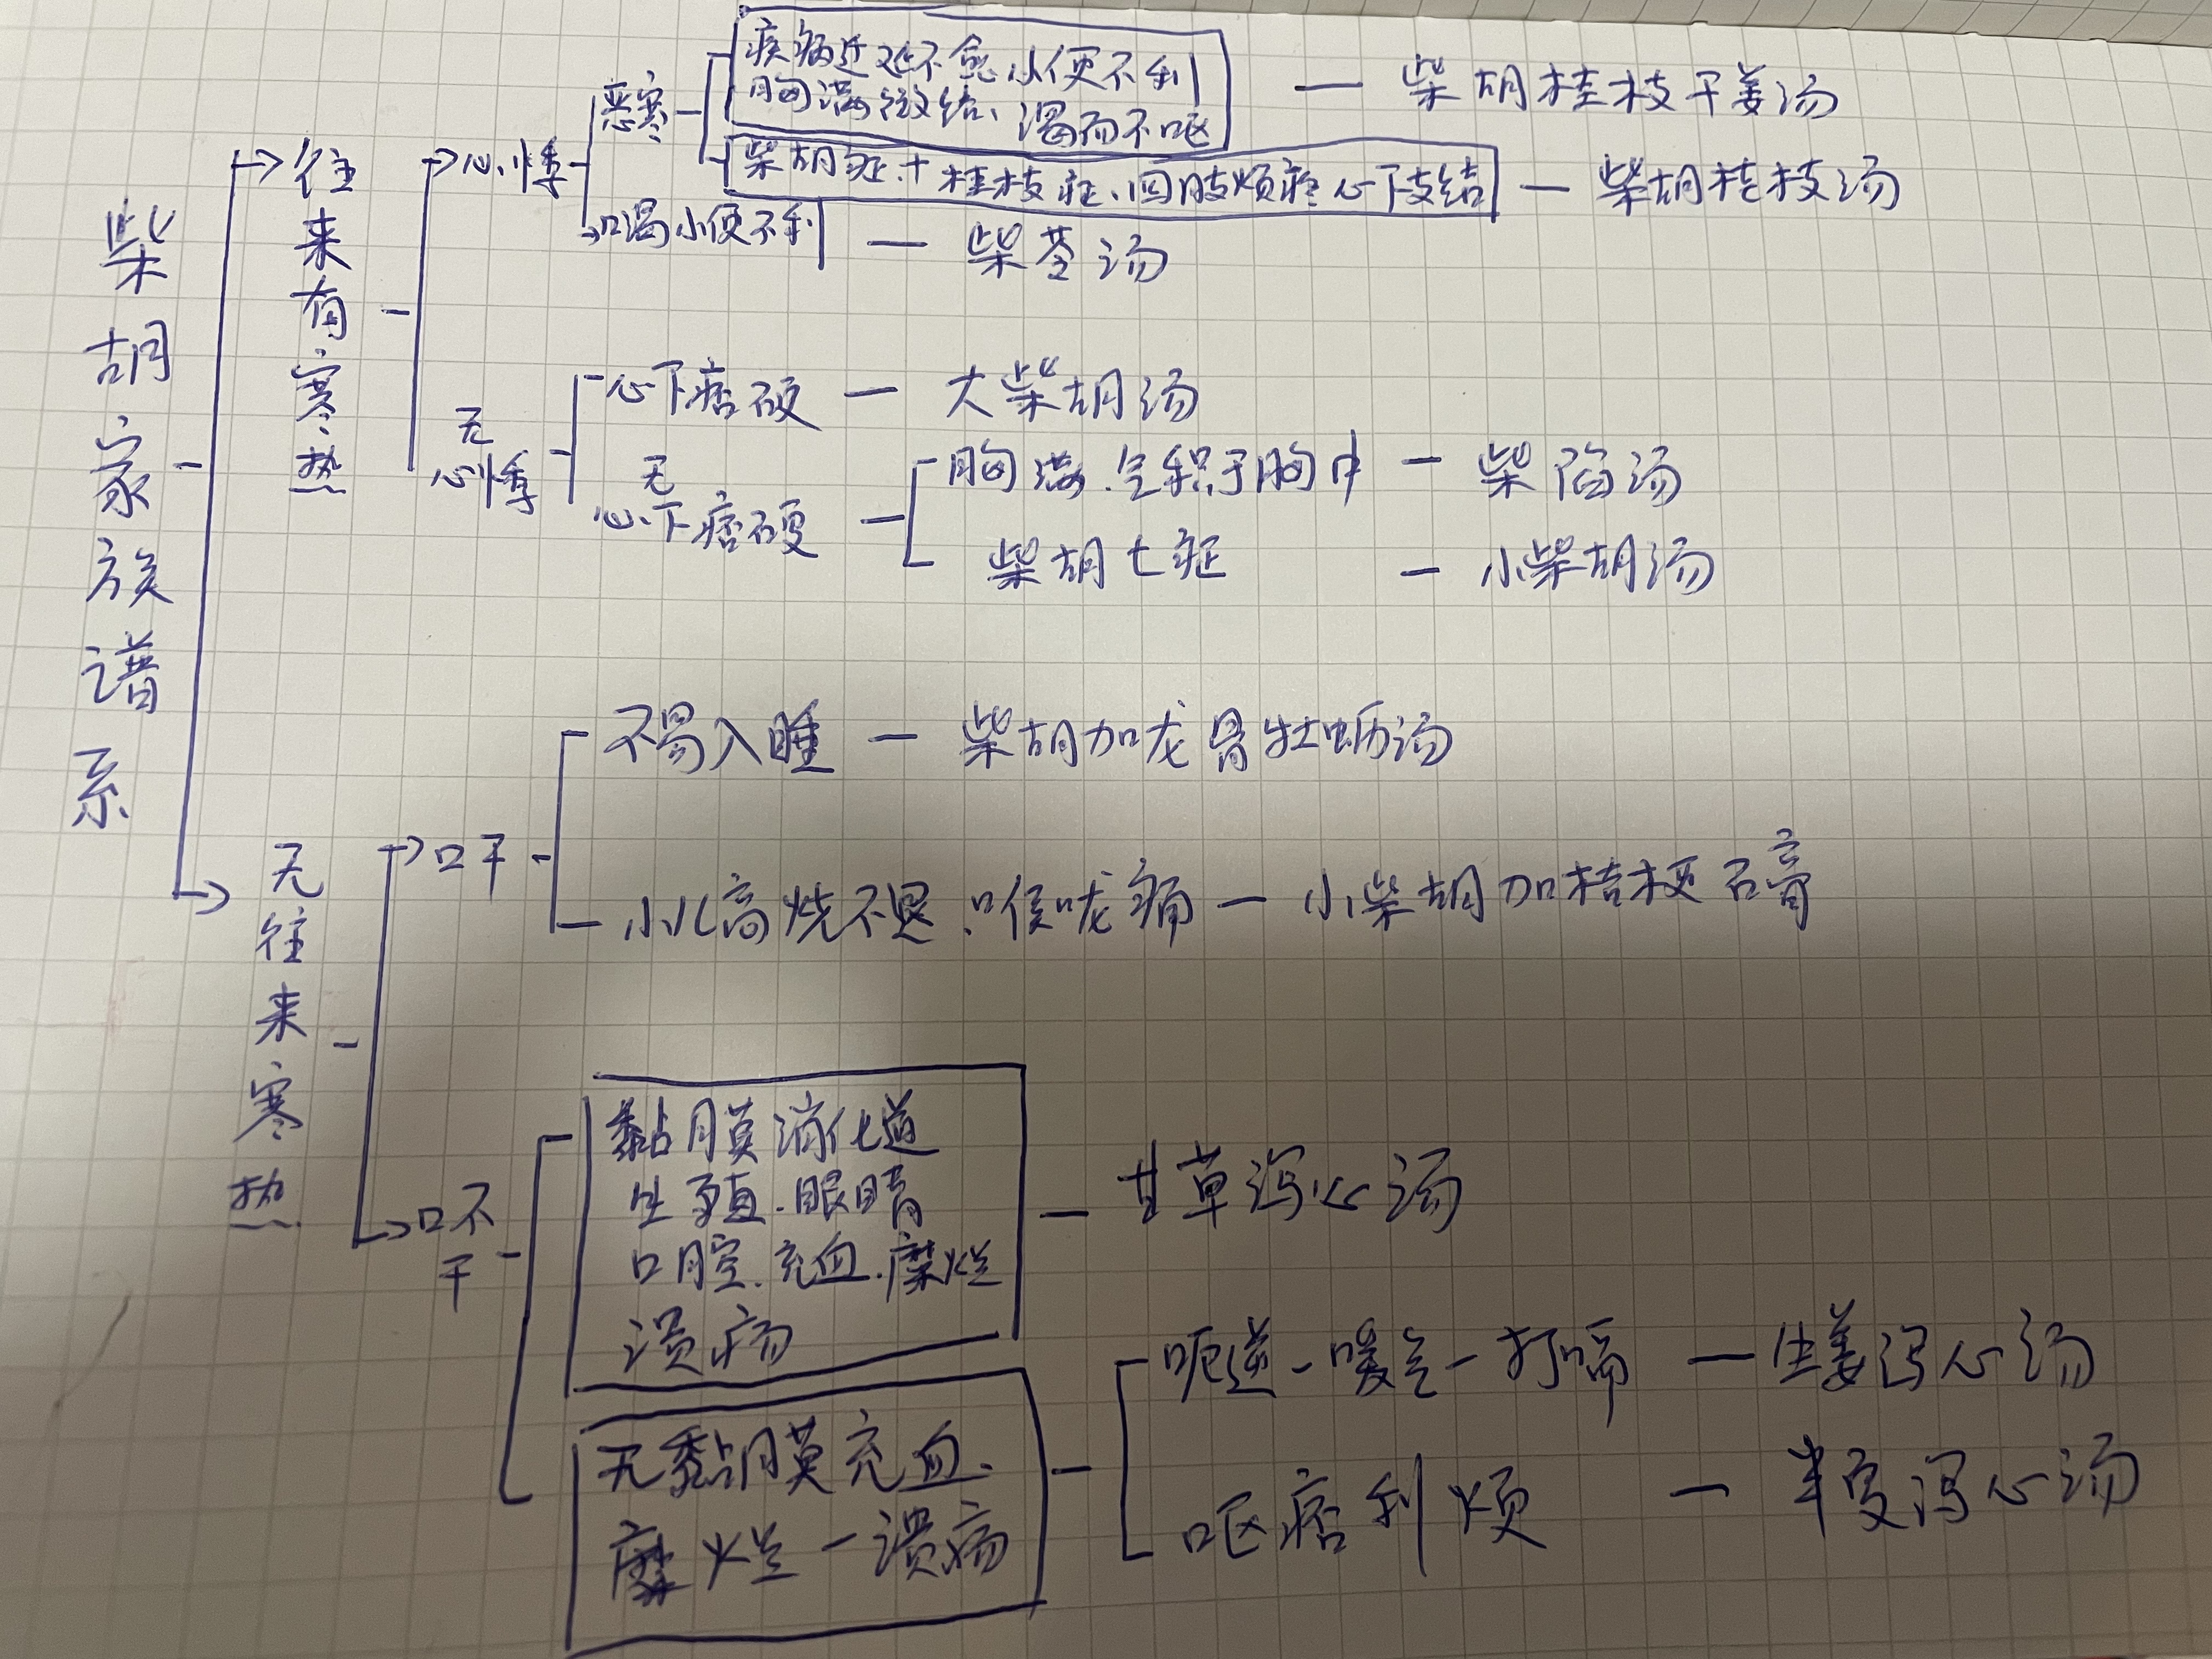 柴胡家族谱系
往来有寒热
心悸
恶寒
疾病迁延不愈小便不利
胸满微结、渴而不呕
柴胡桂枝干姜汤
柴胡症+桂枝症、四肢烦疼心下支结
柴胡桂枝汤
口渴小便不利
柴苓汤
无
心悸
心下痞硬
大柴胡汤
无
心下痞硬
胸满.气积于胸中
柴陷汤
柴胡七症
小柴胡汤
无往来寒热
口干
不易入睡
柴胡加龙骨牡蛎汤
小儿高烧不退.喉咙痛
小柴胡加桔梗石膏
口不
干
黏膜消化道
生殖.眼睛
口腔.充血.糜烂
溃疡
甘草泻心汤
无黏膜充血.
糜烂-溃疡
呃逆-嗳气-打嗝
生姜泻心汤
呕痞利烦
半夏泻心汤